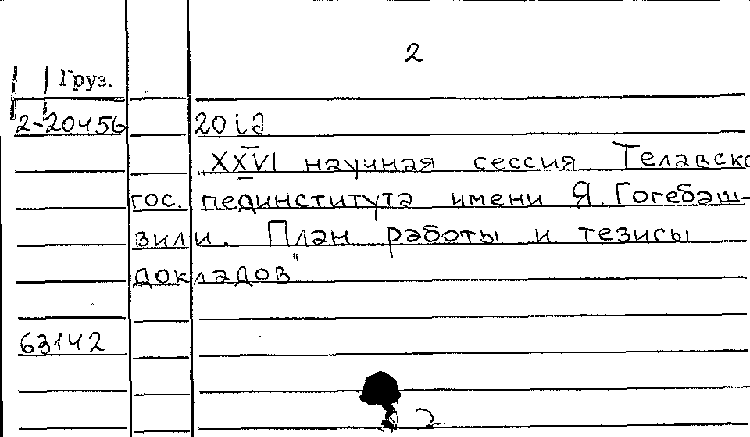 2
Груз.
2-20456
20 i2
"XXVI научная сессия Телавско
гос. пединститута имени Я. Гогебаш-
вили. План работы и тезисы
докладов"
63142
2